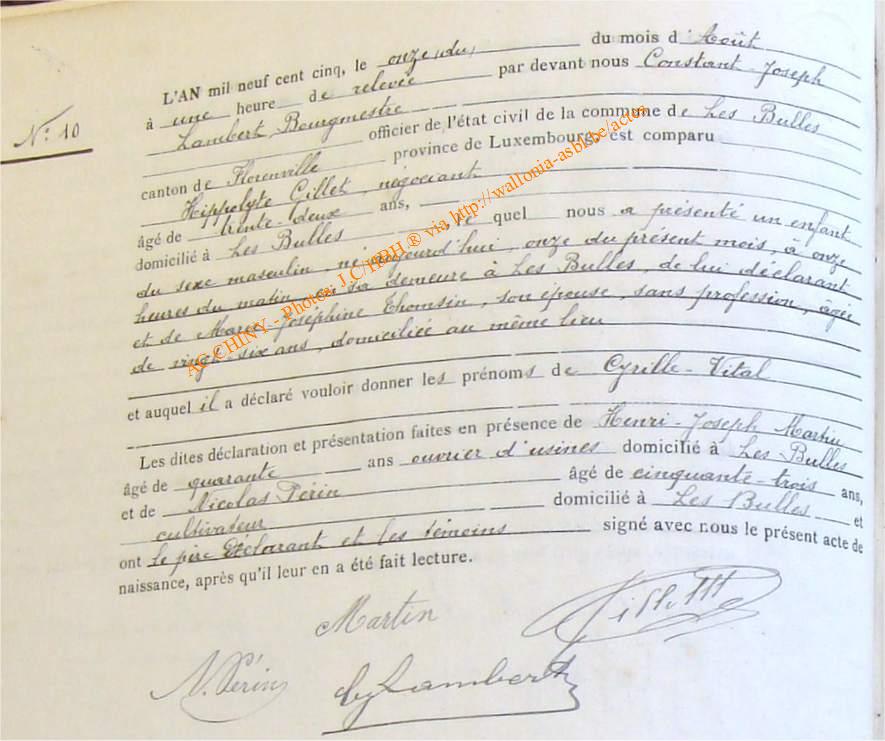 N° 10
L'AN mil neuf cent cinq, le onze (du) du mois d'Août
à une heure de relevée par devant nous Constant-Joseph
Lambert, Bourgmestre
officier de l'état civil de la commune de Les Bulles
canton de Florenville province de Luxembourg, est comparu
Hippolyte Gillet, négociant
âgé de trente-deux ans,
domicilié à Les Bulles le quel nous a présenté un enfant
du sexe masculin, né aujourd'hui, onze du présent mois, à onze
heures du matin, en sa demeure à Les Bulles, de lui déclarant
et de Marie Joséphine Thomsin, son épouse, sans profession, âgée
de vingt-six ans, domiciliée au même lieu
et auquel il a déclaré vouloir donner les prénoms de Cyrille-Vital
Les dites déclaration et présentation faites en présence de Henri-Joseph Martin
âgé de quarante ans ouvrier d'usines domicilié à Les Bulles
et de Nicolas Périn âgé de cinquante-trois ans,
cultivateur domicilié à Les Bulles et
ont le père déclarant et les témoins signé avec nous le présent acte de
naissance, après qu'il leur en a été fait lecture.
Martin
N. Périn
Lambert
AC CHINY - Photos J.C/HBH ® via http://wallonia-asbl.be/actes